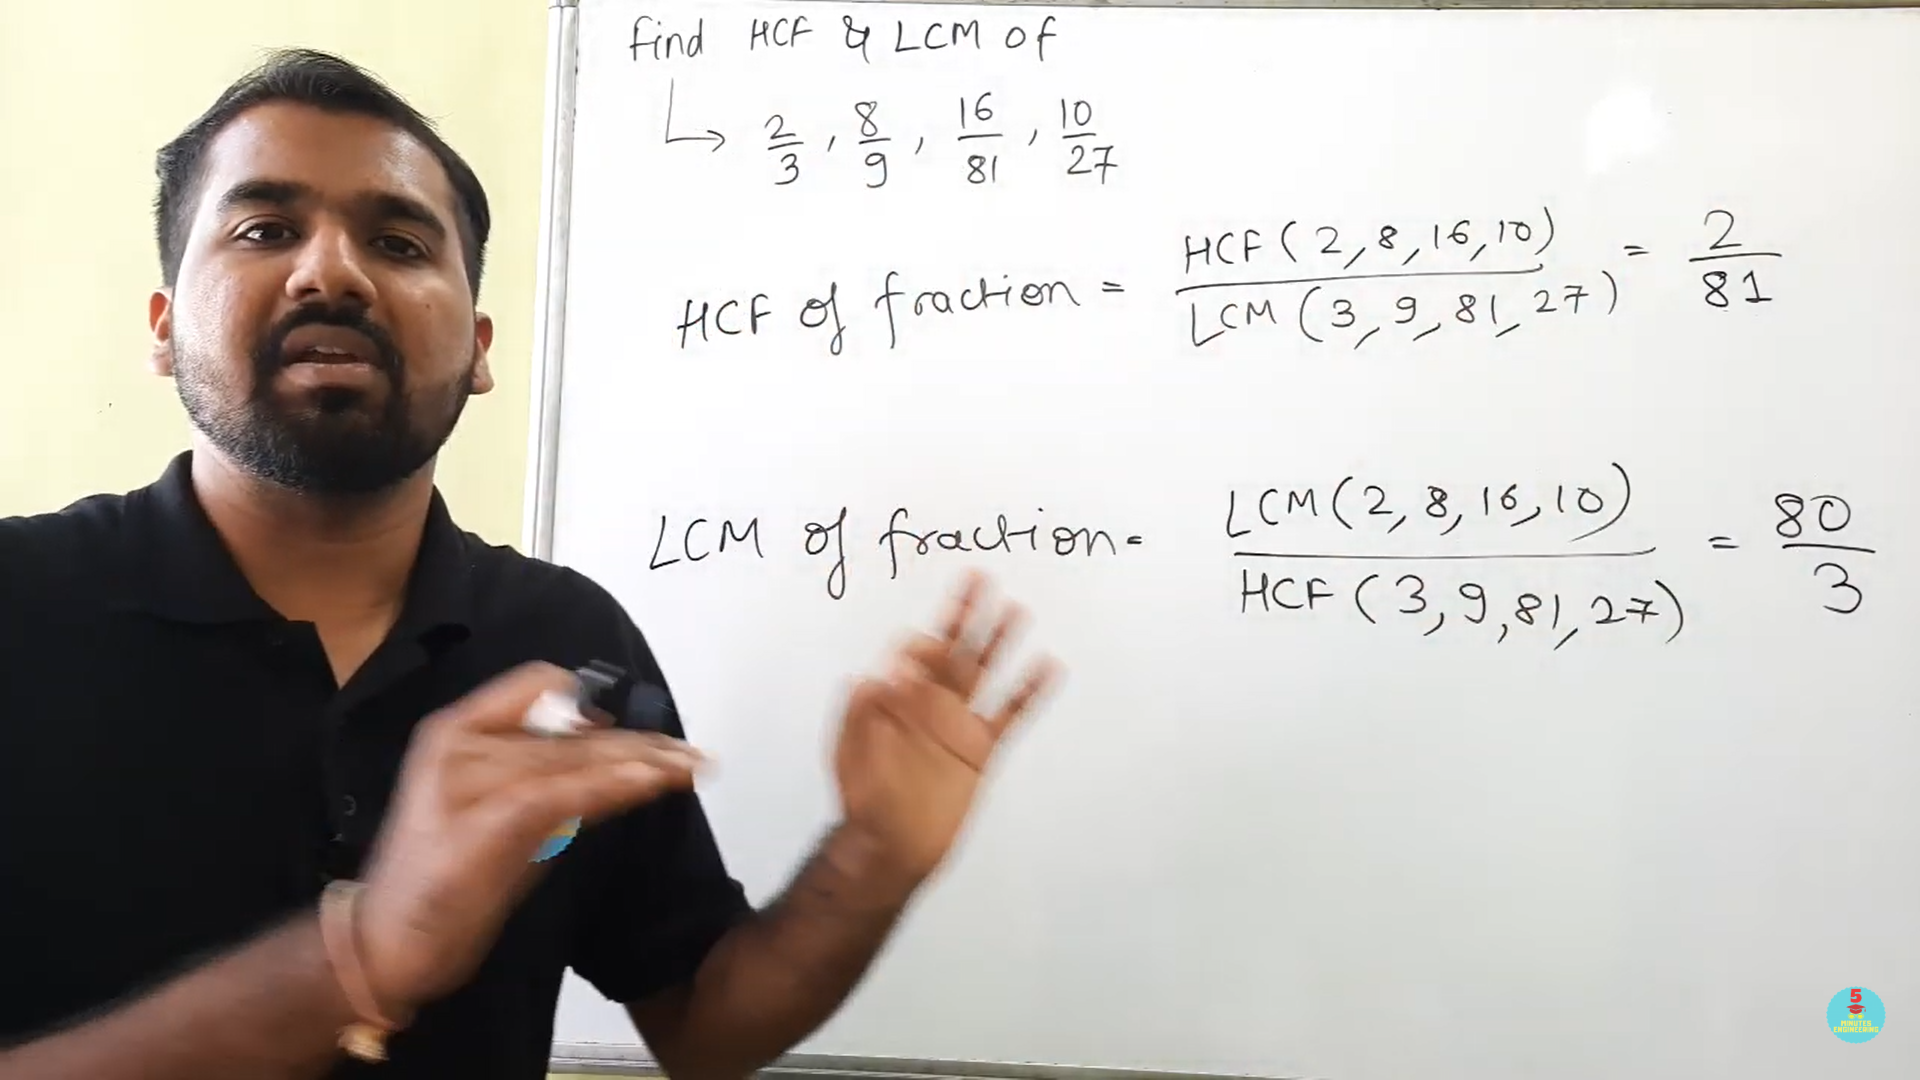 find HCF & LCM of
2/3 , 8/9 , 16/81 , 10/27
HCF of fraction = HCF(2,8,16,10)/LCM(3,9,81,27) = 2/81
LCM of fraction = LCM(2,8,16,10)/HCF(3,9,81,27) = 80/3
5
MINUTES
ENGINEERING